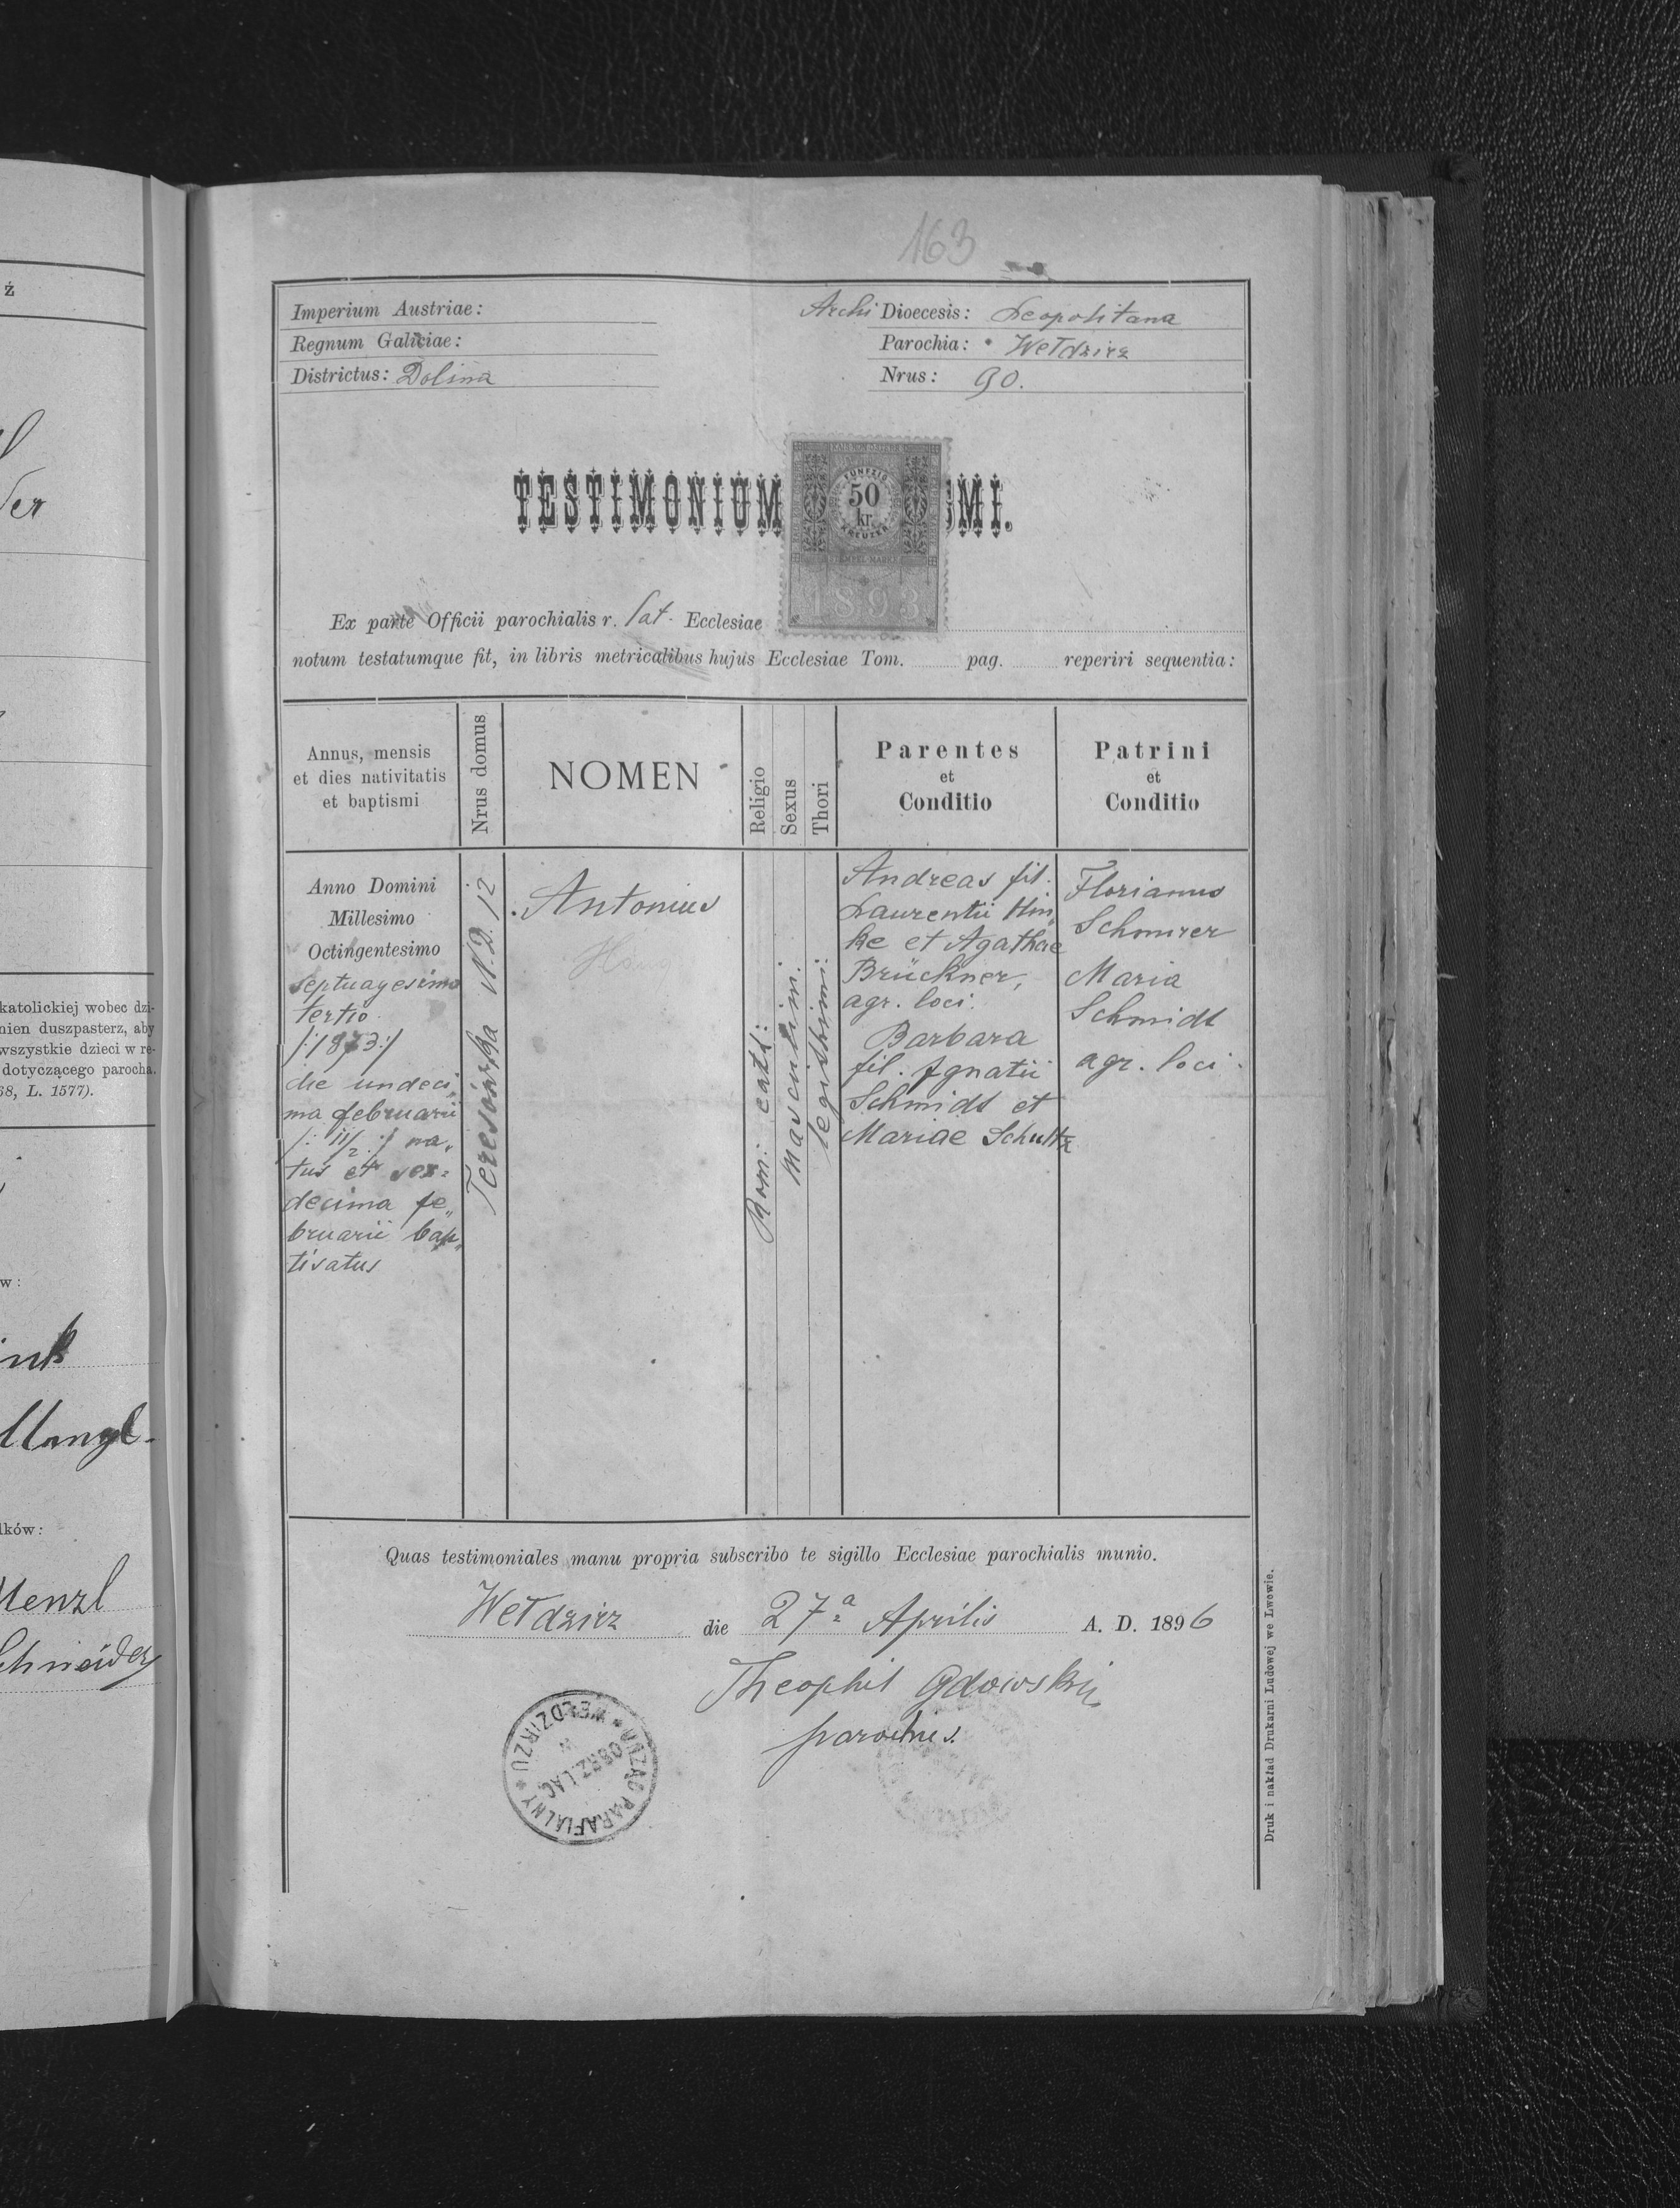 163
Imperium Austriae:
Regnum Galiciae:
Districtus: Dolina
Archi Dioecesis: Leopolitana
Parochia: Wełdzirz
Nrus: 90.
TESTIMONIUM MI.
FÜNFZIG
50
kr.
KREUZER
STEMPEL-MARKE
1893
Ex parte Officii parochialis r. lat. Ecclesiae
notum testatumque fit, in libris metricalibus hujus Ecclesiae Tom. pag. reperiri sequentia:
Annus, mensis
et dies nativitatis
et baptismi
Nrus domus
NOMEN
Religio
Sexus
Thori
Parentes
et
Conditio
Patrini
et
Conditio
Anno Domini
Millesimo
Octingentesimo
septuagesimo
tertio
/:1873:/
die undeci„
ma februarii
/: 11/2 :/ na„
tus et sex=
decima fe„
bruarii bap„
tisatus
Teresówka N.D. 12
Antonius
Rom: cath:
masculini.
legitimi:
Andreas fil.
Laurentii Hin„
ke et Agathae
Brückner,
agr. loci.
Barbara
fil. Ignatii
Schmidt et
Mariae Schultz
Florianus
Schmirer
Maria
Schmidt
agr. loci.
Quas testimoniales manu propria subscribo te sigillo Ecclesiae parochialis munio.
Wełdzirz die 27ª Aprilis A. D. 1896
Theophil Gdowski
parochus.
URZĄD PARAFIALNY * WEŁDZIRZU *
OBRZ. ŁAĆ
W
Druk i nakład Drukarni Ludowej we Lwowie.
ż
der
katolickiej wobec dzi-
nien duszpasterz, aby
wszystkie dzieci w re-
dotyczącego parocha.
68, L. 1577).
w:
ink
Mangl
lków:
Menzl
Schneider